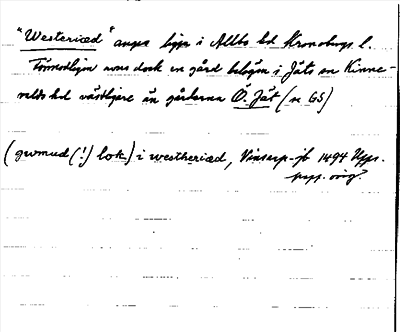 "Westeriæd" anges ligga i Allbo hd Kronobergs l.
Förmodligen avses dock en gård belägen i Jäts sn Kinne-
valds hd västligare än gårdarna Ö. Jät (se GS)
(gwmud (!) lok.) i westheriæd, Vinserp-jb 1494 Upps.
papp. orig.